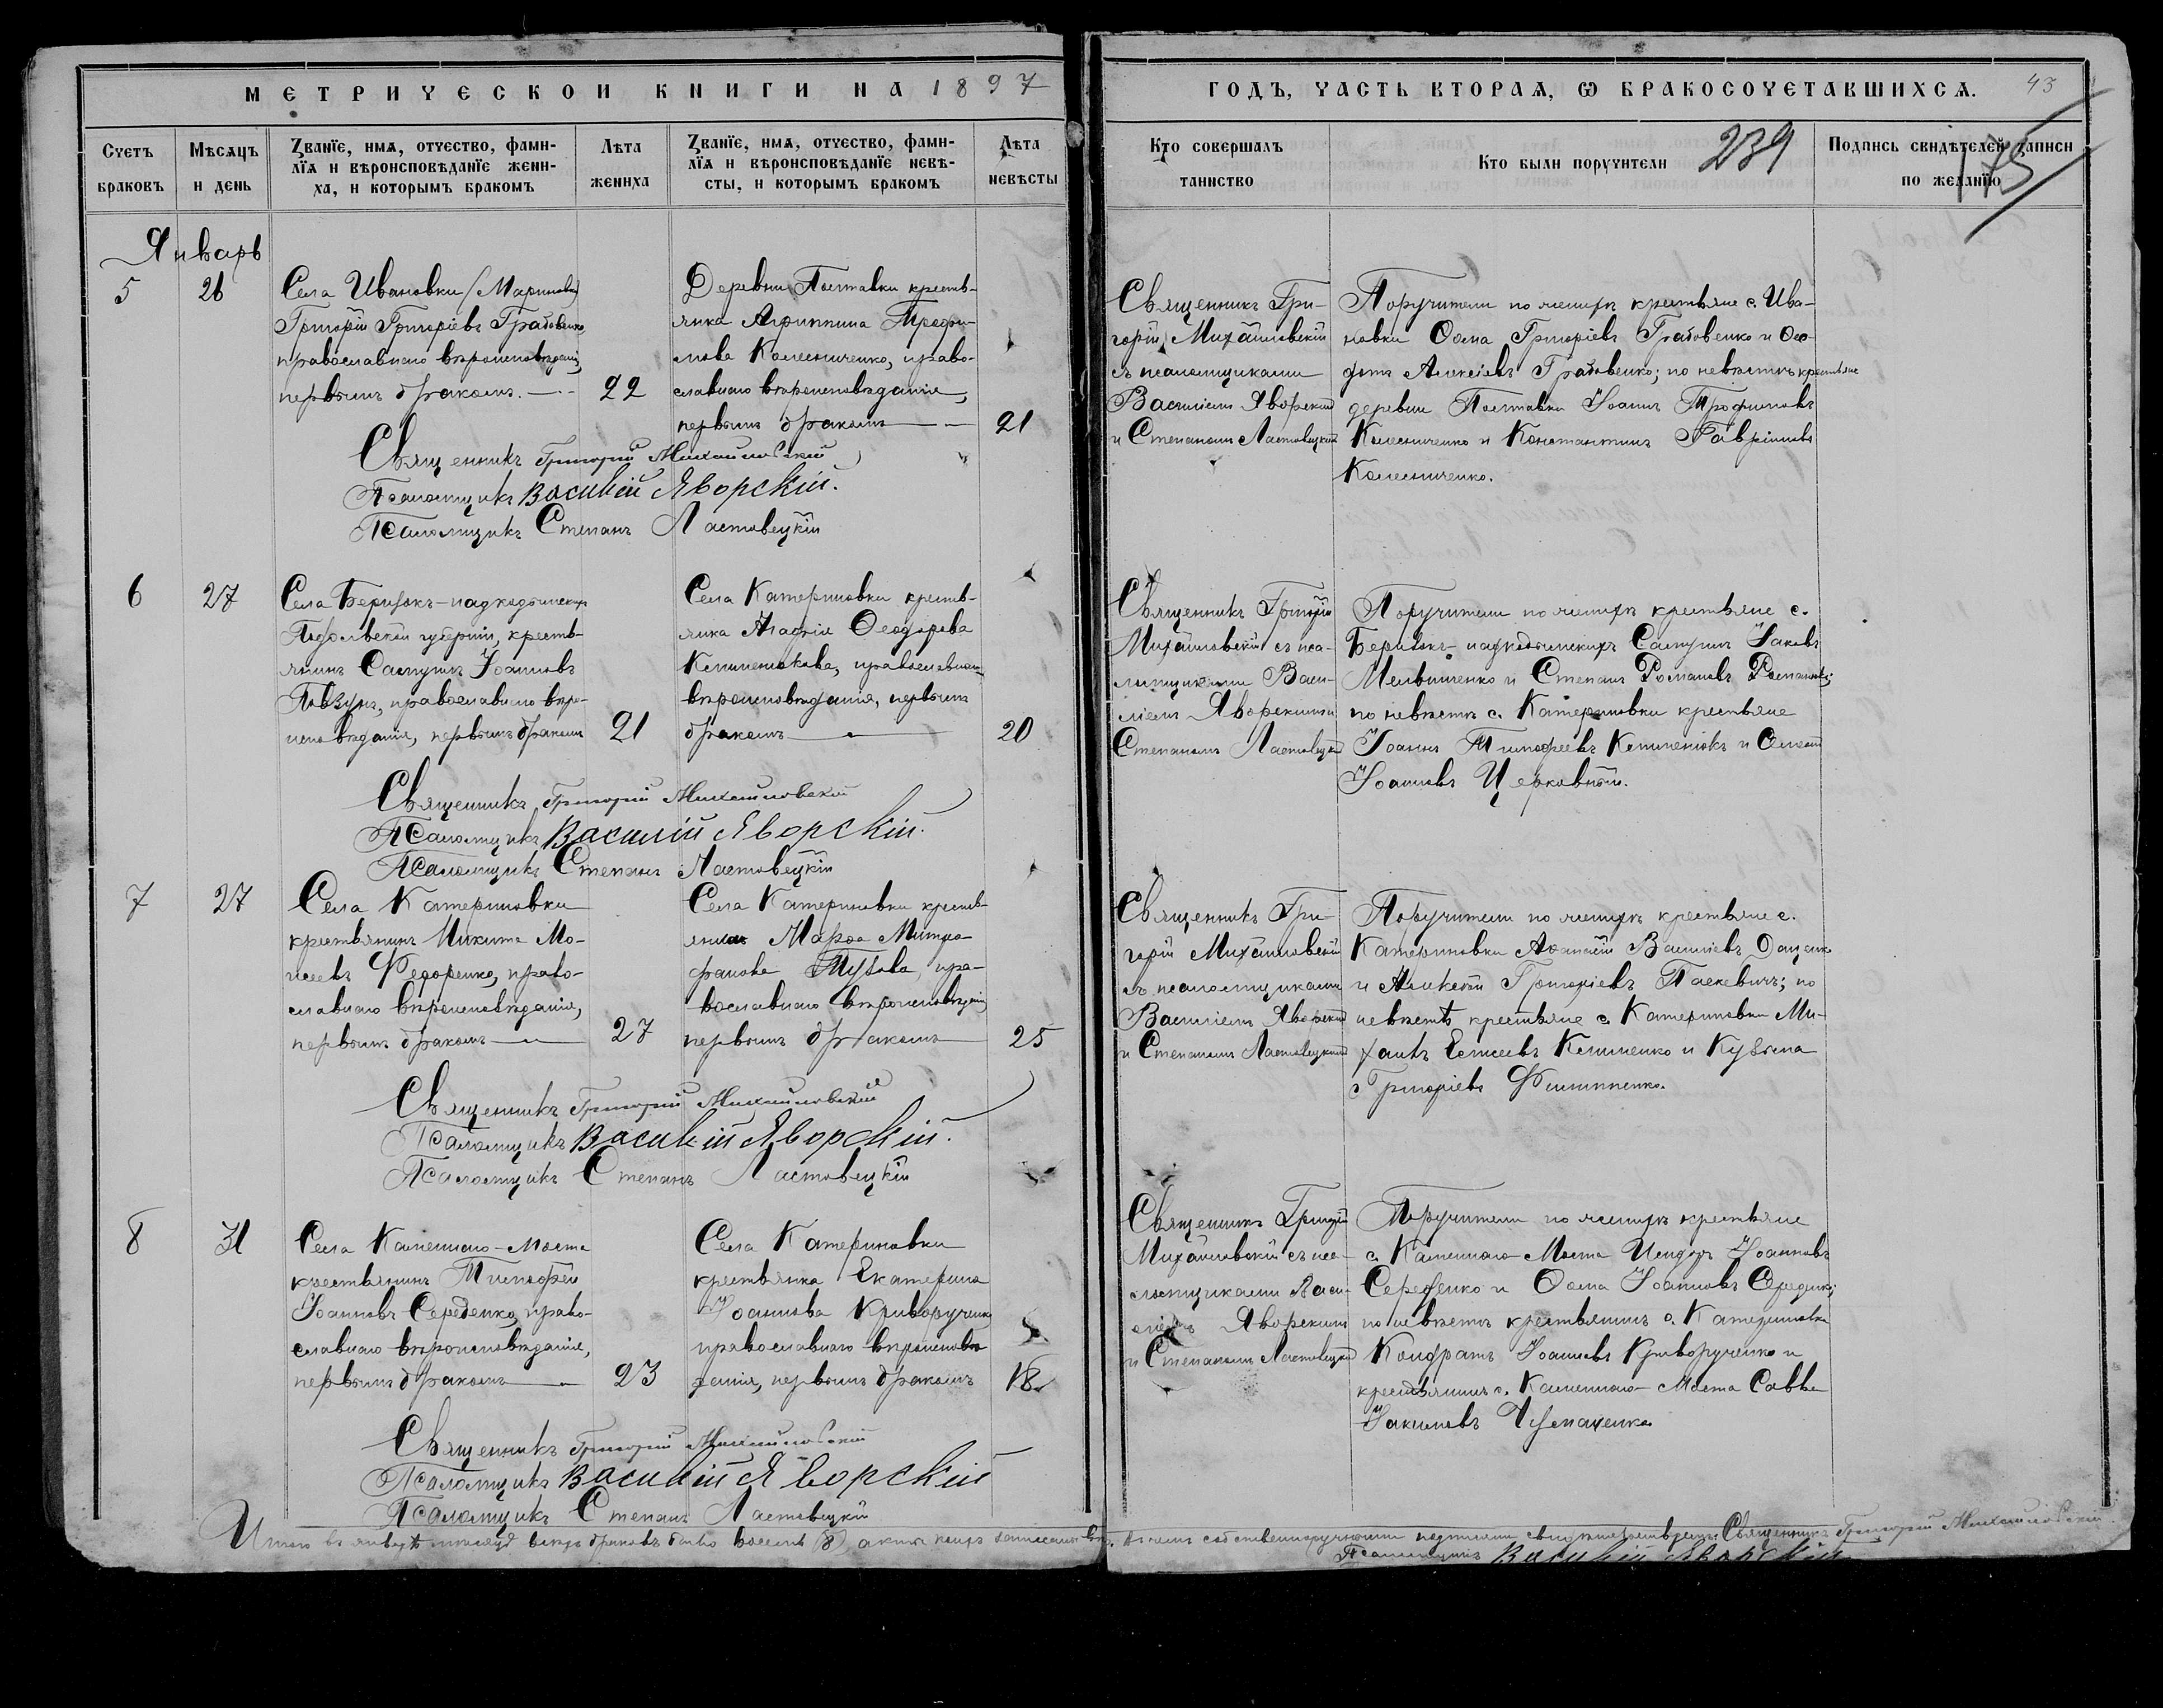 МЕТРИЧЕСКОЙ КНИГИ НА 1897
ГОДЪ, ЧАСТЬ ВТОРАѦ, Ѡ БРАКОСОЧЕТАВШИХСѦ. 43
239
175
Счетъ браковъ
Мѣсѧцъ и день
Званїе, имѧ, отчество, фами-
лїѧ и вѣроисповѣданїе жени-
ха, и которымъ бракомъ
Лѣта жениха
Званїе, имѧ, отчество, фами-
лїѧ и вѣроисповѣданїе невѣ-
сты, и которымъ бракомъ
Лѣта невѣсты
Кто совершалъ таинство
Кто были поручители
Подпись свидѣтелей записи по желанїю
Январь
5
26
Села Ивановки (Маринова)
Григорій Григоріевъ Грабовенко,
православнаго вѣроисповѣданія,
первымъ бракомъ.
22
Деревни Полтавки кресть-
янка Агриппина Трофи-
мова Колесниченко, право-
славнаго вѣроисповѣданія,
первымъ бракомъ
21
Священникъ Гри-
горій Михайловскій
съ псаломщиками
Василіемъ Яворскимъ
и Степаномъ Ластовецкимъ
Поручители по женихѣ крестьяне с. Ива-
новки Ѳома Григоріевъ Грабовенко и Ѳео-
дотъ Алексіевъ Грабовенко; по невѣстѣ крестьяне
деревни Полтавки Іоаннъ Трофимовъ
Колесниченко и Константинъ Гавріиловъ
Колесниченко.
Священникъ Григорій Михайловскій
Псаломщикъ Василій Яворскій.
Псаломщикъ Степанъ Ластовецкій
6
27
Села Беризокъ-надкодымскихъ
Подольской губерніи, кресть-
янинъ Іоанновъ
Повзунъ, православнаго вѣро-
исповѣданія, первымъ бракомъ
21
Села Катериновки кресть-
янка Агафія Ѳеодорова
православнаго
вѣроисповѣданія, первымъ
бракомъ
20
Священникъ Григорій
Михайловскій съ пса-
ломщиками Васи-
ліемъ Яворскимъ и
Степаномъ Ластовецкимъ
Поручители по женихѣ крестьяне с.
Беризокъ-надкодымскихъ Іаковъ
Мельниченко и Степанъ Романовъ
по невѣстѣ с. Катериновки крестьяне
Іоаннъ Тимофеевъ и
Іоанновъ Церковный.
Священникъ Григорій Михайловскій
Псаломщикъ Василій Яворскій.
Псаломщикъ Степанъ Ластовецкій
7
27
Села Катериновки
крестьянинъ Никита Мо-
исеевъ Федоренко, право-
славнаго вѣроисповѣданія,
первымъ бракомъ
27
Села Катериновки кресть-
янка Марѳа Митро-
фанова пра-
вославнаго вѣроисповѣданія,
первымъ бракомъ
25
Священникъ Гри-
горій Михайловскій
съ псаломщиками
Василіемъ Яворскимъ
и Степаномъ Ластовецкимъ
Поручители по женихѣ крестьяне с.
Катериновки Аѳанасій Василіевъ Доценко
и Алексій Григоріевъ Паскевичъ; по
невѣстѣ крестьяне с. Катериновки Ми-
хаилъ Елисеевъ и Кузьма
Григоріевъ Филиппенко.
Священникъ Григорій Михайловскій
Псаломщикъ Василій Яворскій.
Псаломщикъ Степанъ Ластовецкій
8
31
Села Каменнаго-Моста
крестьянинъ Тимофей
Іоанновъ Середенко, право-
славнаго вѣроисповѣданія,
первымъ бракомъ
23
Села Катериновки
крестьянка Екатерина
Іоаннова Криворученко
православнаго вѣроисповѣ-
данія, первымъ бракомъ
18
Священникъ Григорій
Михайловскій съ пса-
ломщиками Васи-
ліемъ Яворскимъ
и Степаномъ Ластовецкимъ
Поручители по женихѣ крестьяне
с. Каменнаго-Моста Исидоръ Іоанновъ
Середенко и Ѳома Іоанновъ Середенко;
по невѣстѣ крестьянинъ с. Катериновки
Кондратъ Іоанновъ Криворученко и
крестьянинъ с. Каменнаго-Моста Савва
Іакимовъ
Священникъ Григорій Михайловскій
Псаломщикъ Василій Яворскій
Псаломщикъ Степанъ Ластовецкій
Итого въ январѣ мѣсяцѣ всѣхъ браковъ было восемь (8), въ чемъ собственноручными подписями свидѣтельствуемъ: Священникъ Григорій Михайловскій
Псаломщикъ Василій Яворскій